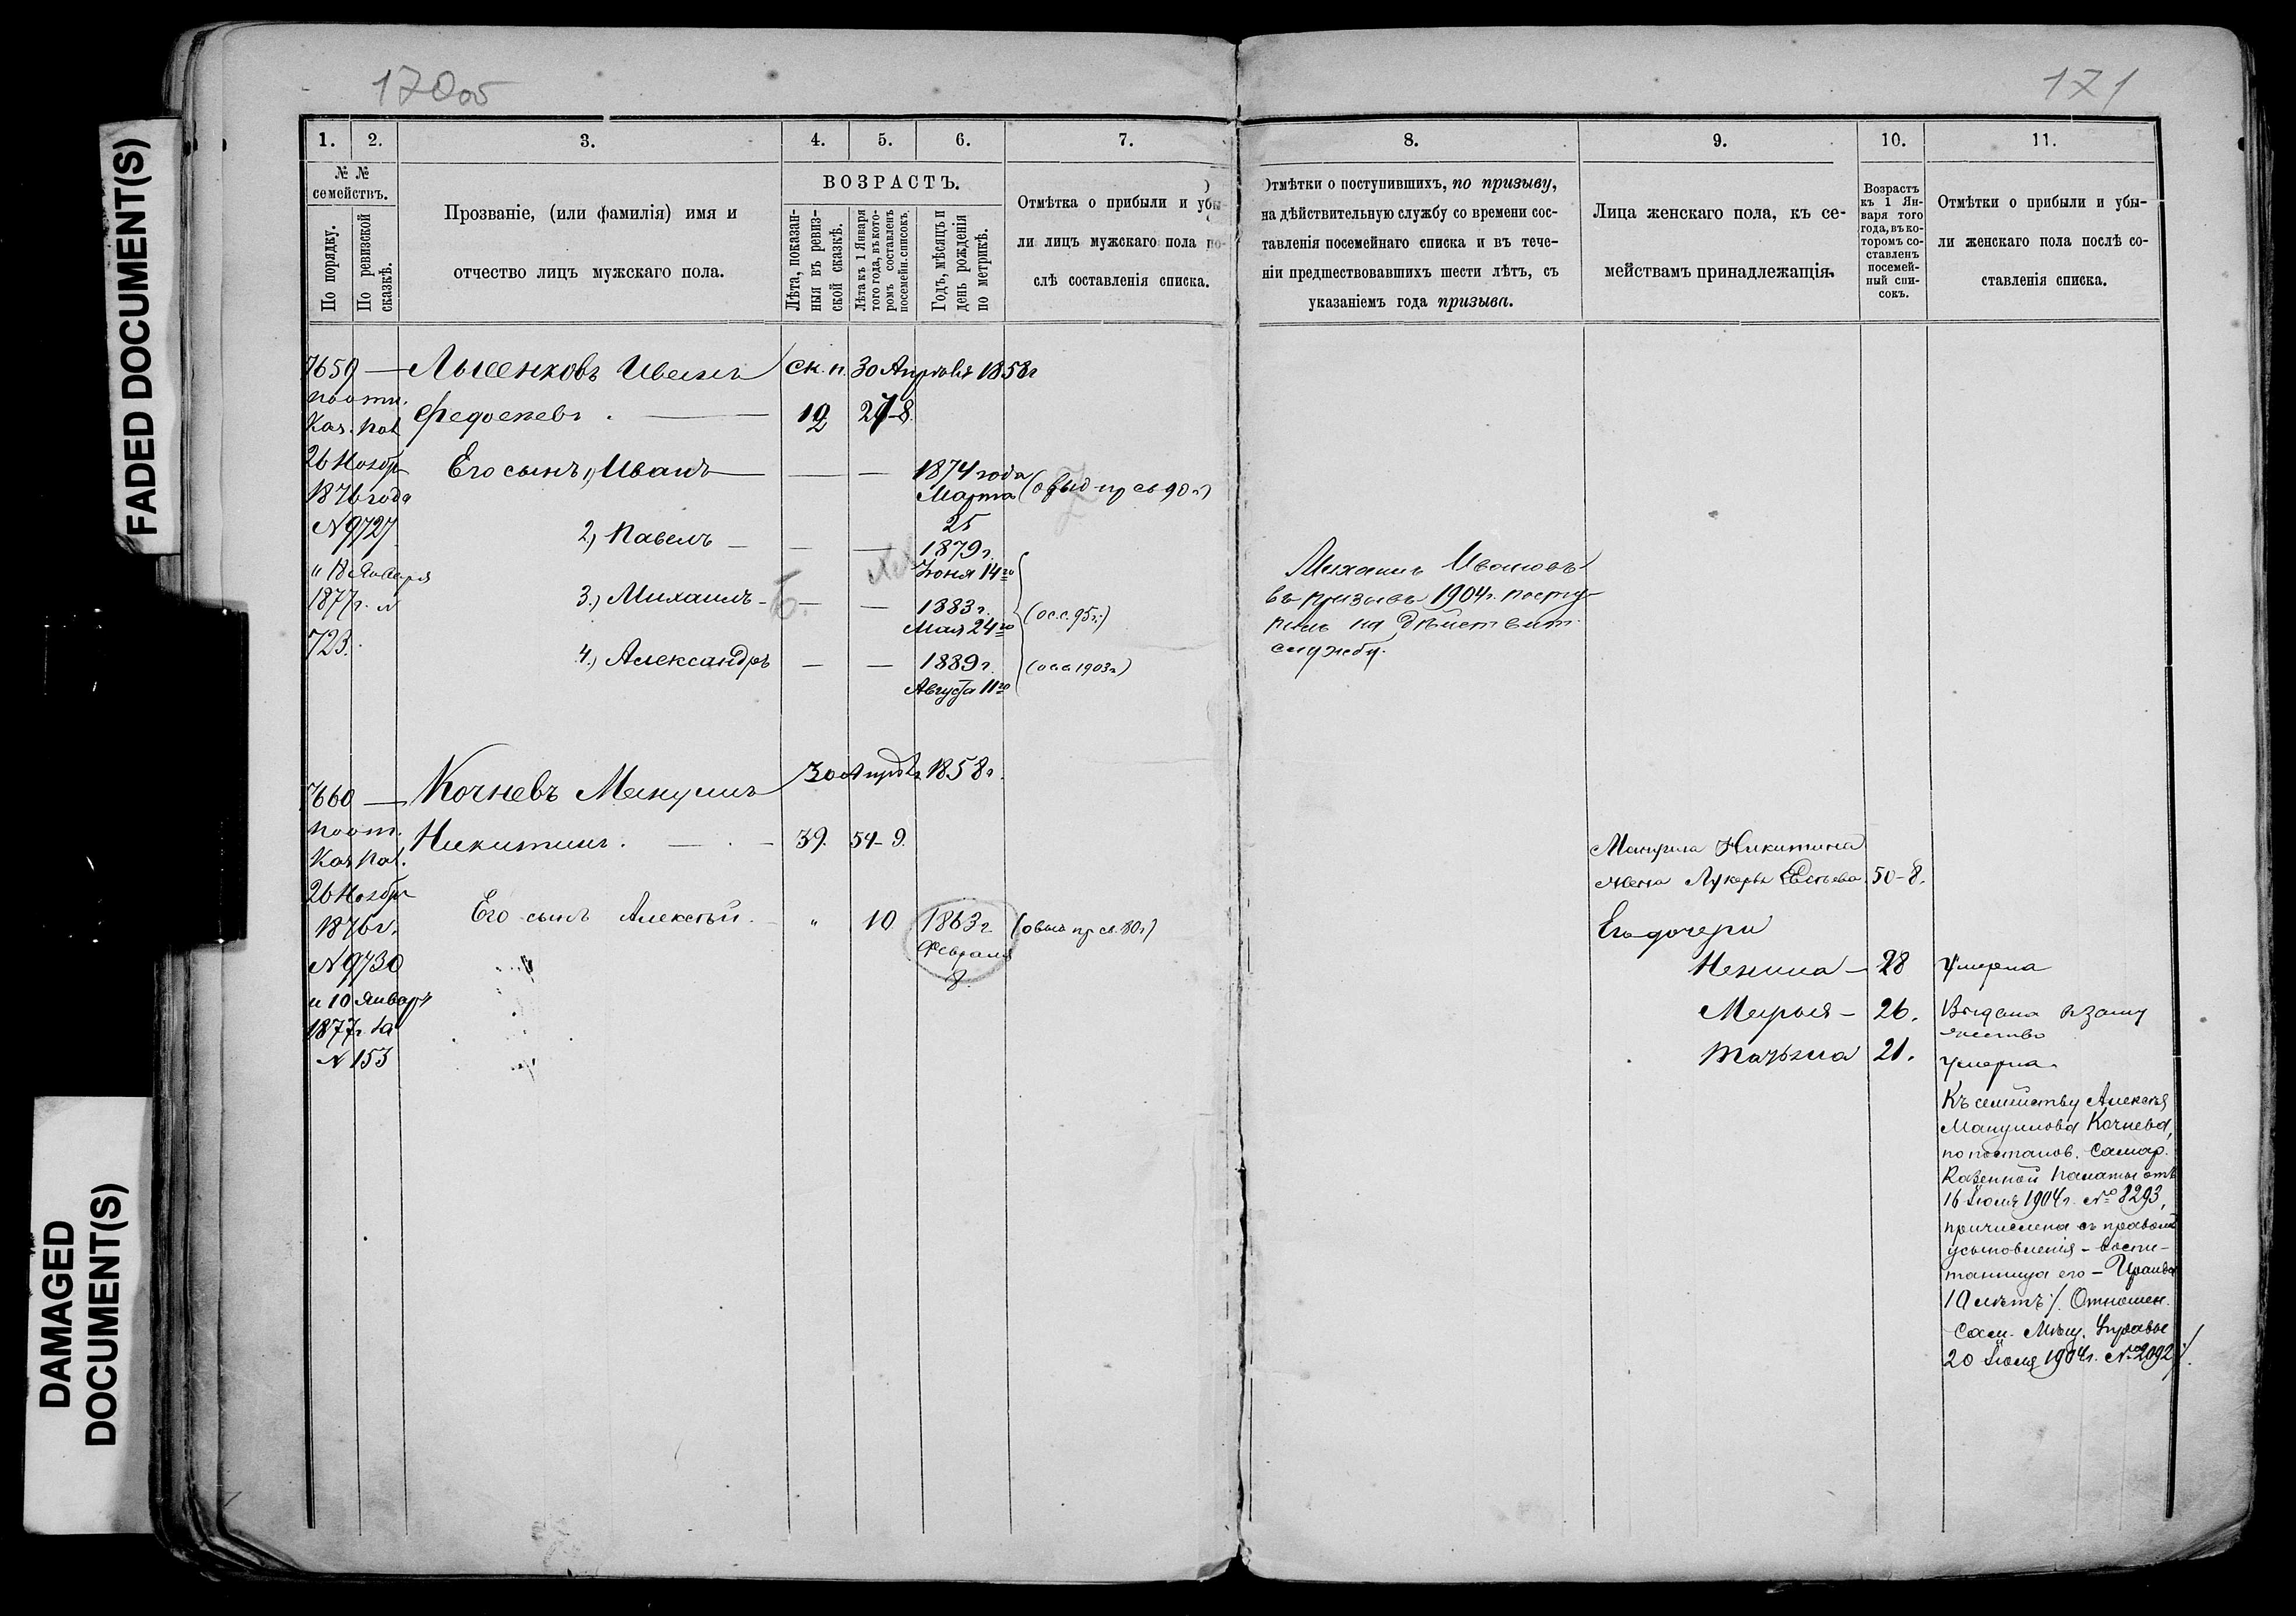 FADED DOCUMENT(S)
DAMAGED
DOCUMENT(S)
170об
171
1.
2.
3.
4.
5.
6.
7.
№ №
семействъ.
По порядку.
По ревизской
сказкѣ.
Прозваніе, (или фамилія) имя и
отчество лицъ мужскаго пола.
ВОЗРАСТЪ.
Лѣта, показан-
ныя въ ревиз-
ской сказкѣ.
Лѣта къ 1 Января
того года, въ кото-
ромъ составленъ
посемейн. списокъ.
Годъ, мѣсяцъ и
день рожденія
по метрикѣ.
Отмѣтка о прибыли и убы-
ли лицъ мужскаго пола по-
слѣ составленія списка.
7659 — Лысенковъ Иванъ ск. п. 30 Апрѣля 1858г
по отн.
Федосѣевъ. — 12 27-8.
Каз. Пал.
26 Ноябр
1876 года
№ 9727
и 18 Января
1877г. №
723.
Его сынъ 1, Иванъ — — — 1874 года
Марта
25
2, Павелъ — — — 1879 г.
Іюня 14го
3.) Михаилъ — — — 1883 г.
Мая 24го
(осс. 95г.)
4.) Александръ — — 1889 г.
Августа 11го
(осс 1903г.)
7660 — Кочневъ Мануилъ 30 Апрѣля 1858г.
по от.
Никитинъ. — 39. 54-9.
Каз Пал.
26 Ноябр
1876г.
№ 9730
и 10 Января
1877г. за
№ 153
Его сынъ Алексѣй. " 10 1863г
Февраля
8.
8.
9.
10.
11.
Отмѣтки о поступившихъ, по призыву,
на дѣйствительную службу со времени сос-
тавленія посемейнаго списка и въ тече-
ніи предшествовавшихъ шести лѣтъ, съ
указаніемъ года призыва.
Лица женскаго пола, къ се-
мействамъ принадлежащія.
Возрастъ
къ 1 Ян-
варя того
года, въ ко-
торомъ со-
ставленъ
посемей-
ный спи-
сокъ.
Отмѣтки о прибыли и убы-
ли женскаго пола послѣ со-
ставленія списка.
Михаилъ Ивановъ
въ призывъ 1904г. посту-
пилъ на дѣйствит.
службу.
Мануила Никитина
жена Лукерья 50-8.
Его дочери
Ненила — 28 Умерла
Марья — 26. Выдана в заму
жество
Татьяна 21. умерла
Къ семейству Алексѣя
Мануилова Кочнева,
по постанов. Самар.
Казенной Палаты отъ
16 Іюля 1904г. № 8293,
причислена съ правомъ
усыновленія — воспи-
танница его — Ираида
10 лѣтъ /. Отношен.
Сам. Мѣщ. Управы
20 Іюля 1904г. № 2092 /.